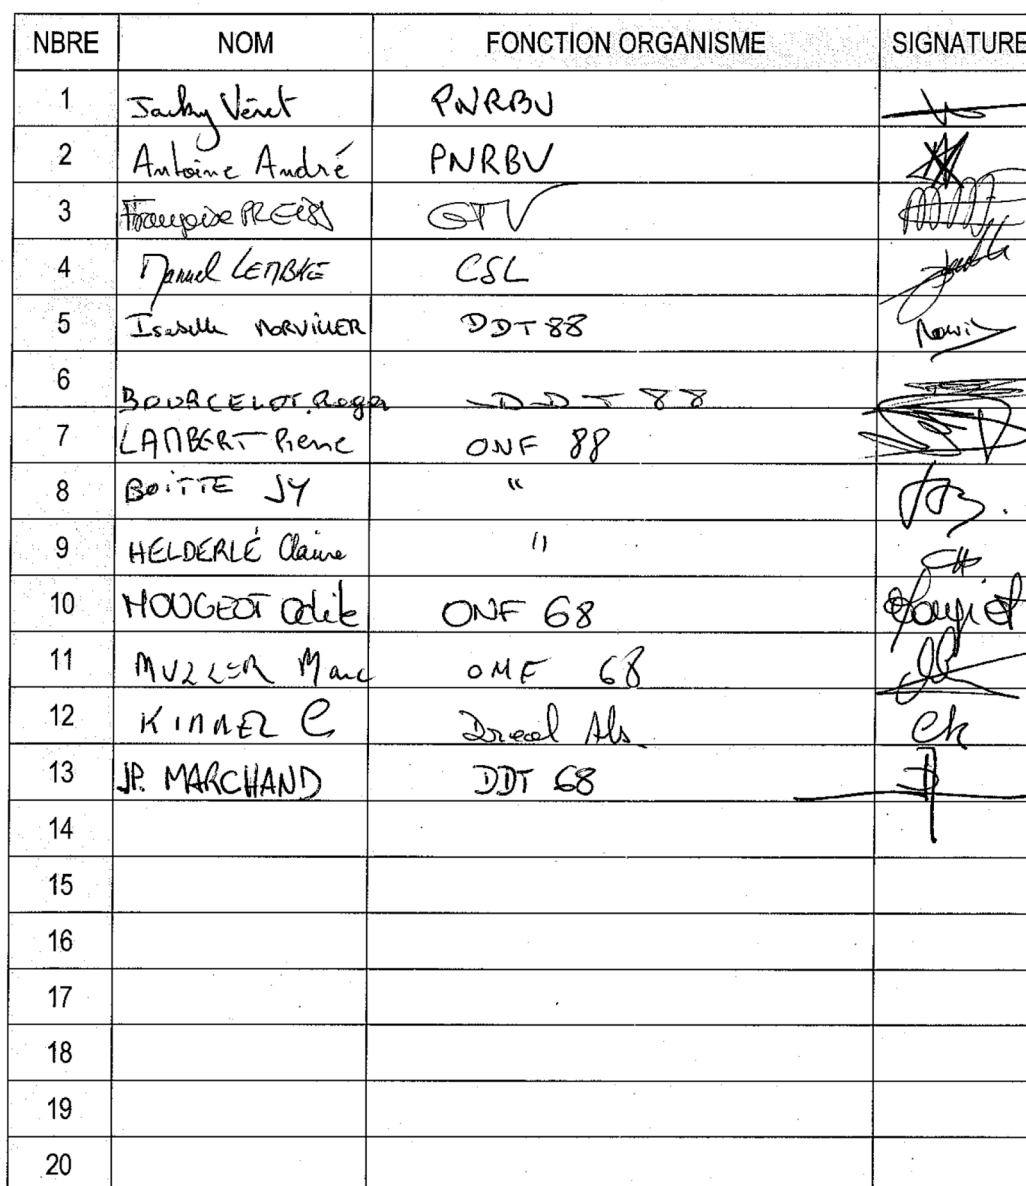 NBRE NOM FONCTION ORGANISME SIGNATURE
1 Jacky Véret PNRBV
2 Antoine André PNRBV
3 Françoise PREISS GTV
4 Manuel LEMBKE CSL
5 Isabelle MORVILLER DDT 88
6 BOURCELOT. Roger DDT 88
7 LAMBERT Pierre ONF 88
8 BOITTE JY "
9 HELDERLÉ Claire "
10 MOUGEOT Odile ONF 68
11 MULLER Marc ONF 68
12 KINNEL C Dreal Als. CK
13 JP. MARCHAND DDT 68
14
15
16
17
18
19
20